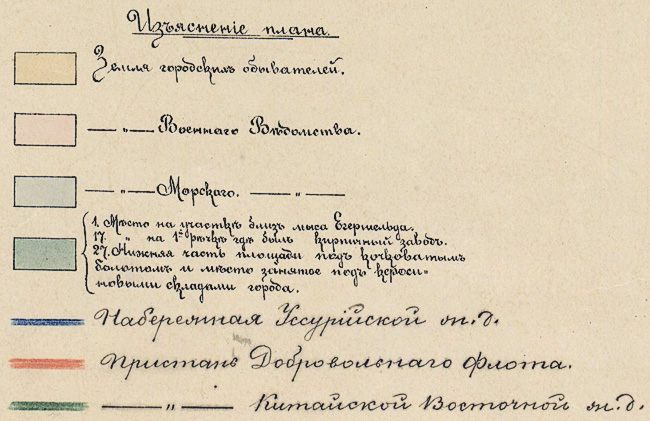 Изъясненіе плана.
Земля городскихъ обывателей.
— „ — Военнаго Вѣдомства.
— „ — Морскаго. — „ —
1. Мѣсто на участкѣ близъ мыса Егершельда.
17. „ на 1й рѣчкѣ гдѣ былъ кирпичный заводъ.
27. Нижняя часть площади подъ кочковатымъ
болотомъ и мѣсто занятое подъ кероси-
новыми складами города.
Набережная Уссурійской ж. д.
Пристань Добровольнаго Флота.
— „ — Китайской Восточной ж. д.